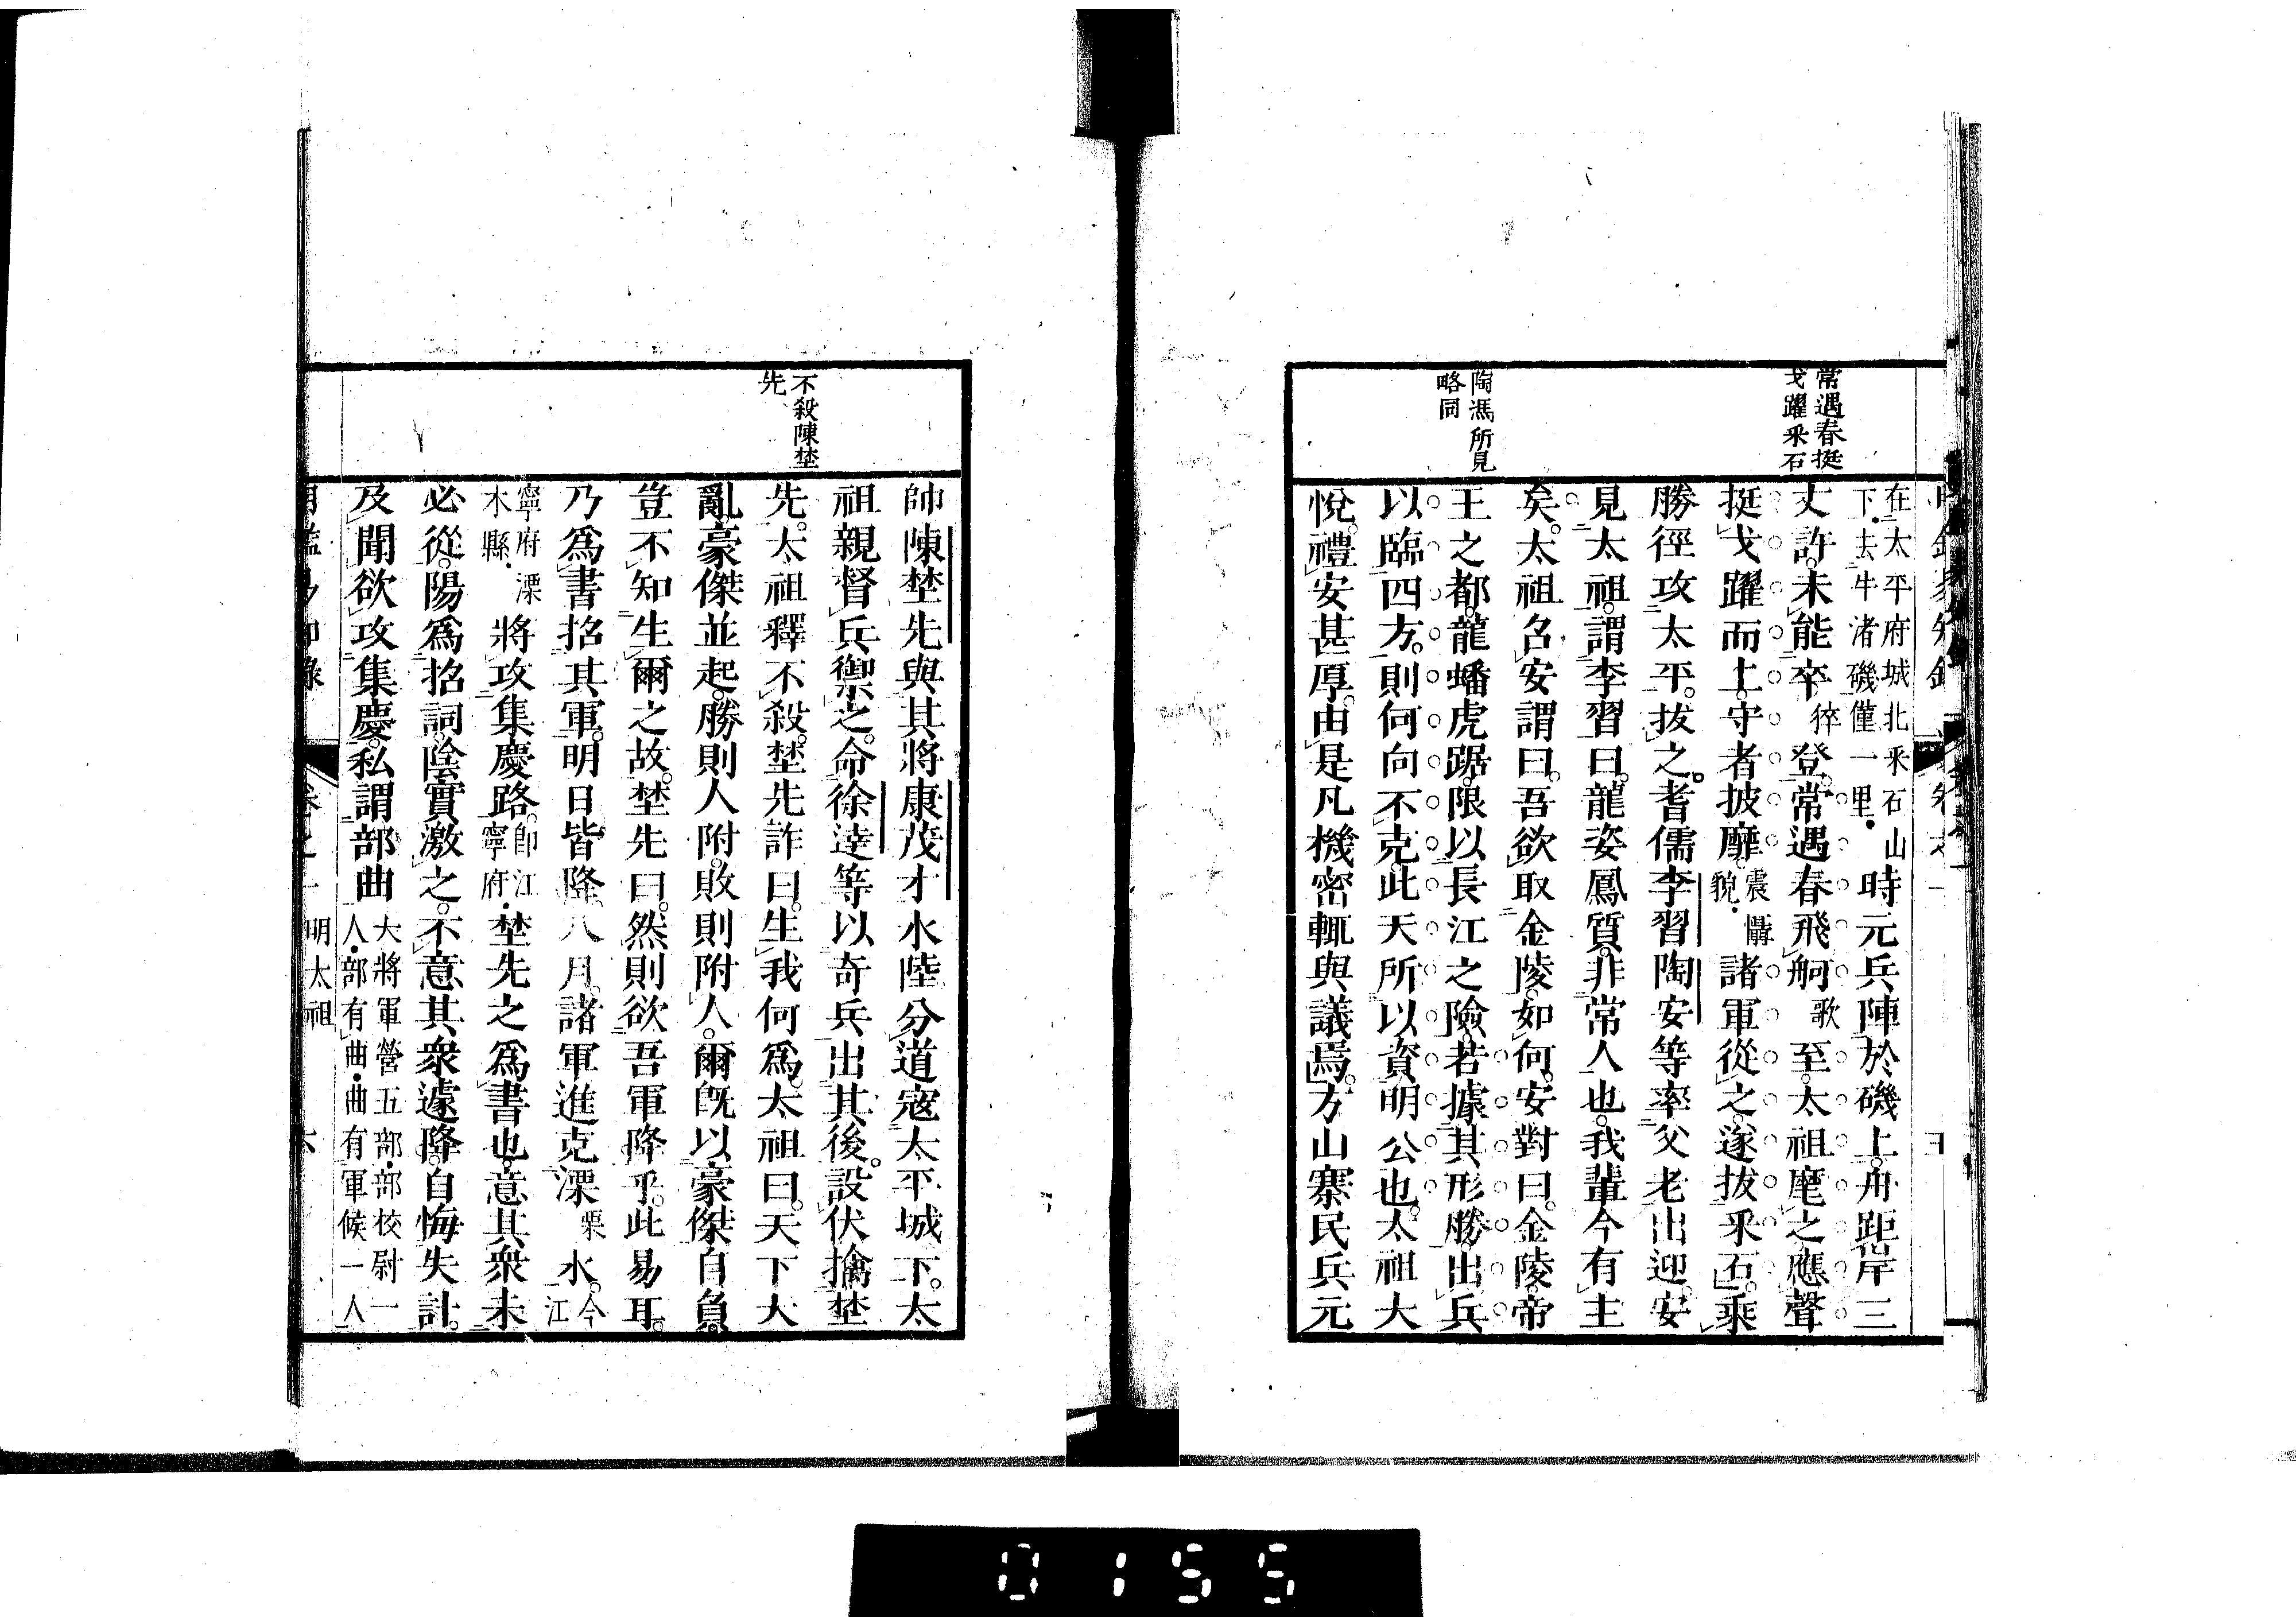 常遇春挺
戈躍釆石
陶馮所見
略同
在太平府城北釆石山
下去牛渚磯僅一里
時元兵陣於磯上。舟距岸三
丈許。未能卒猝登。常遇春飛舸歌至。太祖麾之。應聲
挺戈躍而上。守者披靡。震懾貌諸軍從之。遂拔釆石。乘
勝徑攻太平。拔之。耆儒李習陶安等率父老出迎。安
見太祖。謂李習曰。龍姿鳳質。非常人也。我輩今有主
矣。太祖召安謂曰。吾欲取金陵。如何。安對曰。金陵。帝
王之都。龍蟠虎踞。限以長江之險。若據其形勝。出兵
以臨四方。則何向不克。此天所以資明公也。太祖大
悅。禮安甚厚。由是凡機密輒與議焉。方山寨民兵元
不殺陳埜
先
帥陳埜先與其將康茂才水陸分道寇太平城下。太
祖親督兵禦之。命徐達等以奇兵出其後。設伏擒埜
先。太祖釋不殺。埜先詐曰。生我何爲。太祖曰。天下大
亂。豪傑並起。勝則人附。敗則附人。爾旣以豪傑自負。
豈不知生爾之故。埜先曰。然則欲吾軍降乎。此易耳。
乃爲書招其軍。明日皆降。八月。諸軍進克溧栗水。今江
寧府溧水縣將攻集慶路。卽江寧府埜先之爲書也。意其衆未
必從。陽爲招詞。陰實激之。不意其衆遽降。自悔失計。
及聞欲攻集慶。私謂部曲大將軍營五部部校尉一人部有曲曲有軍候一人
卷之一 明太祖 六